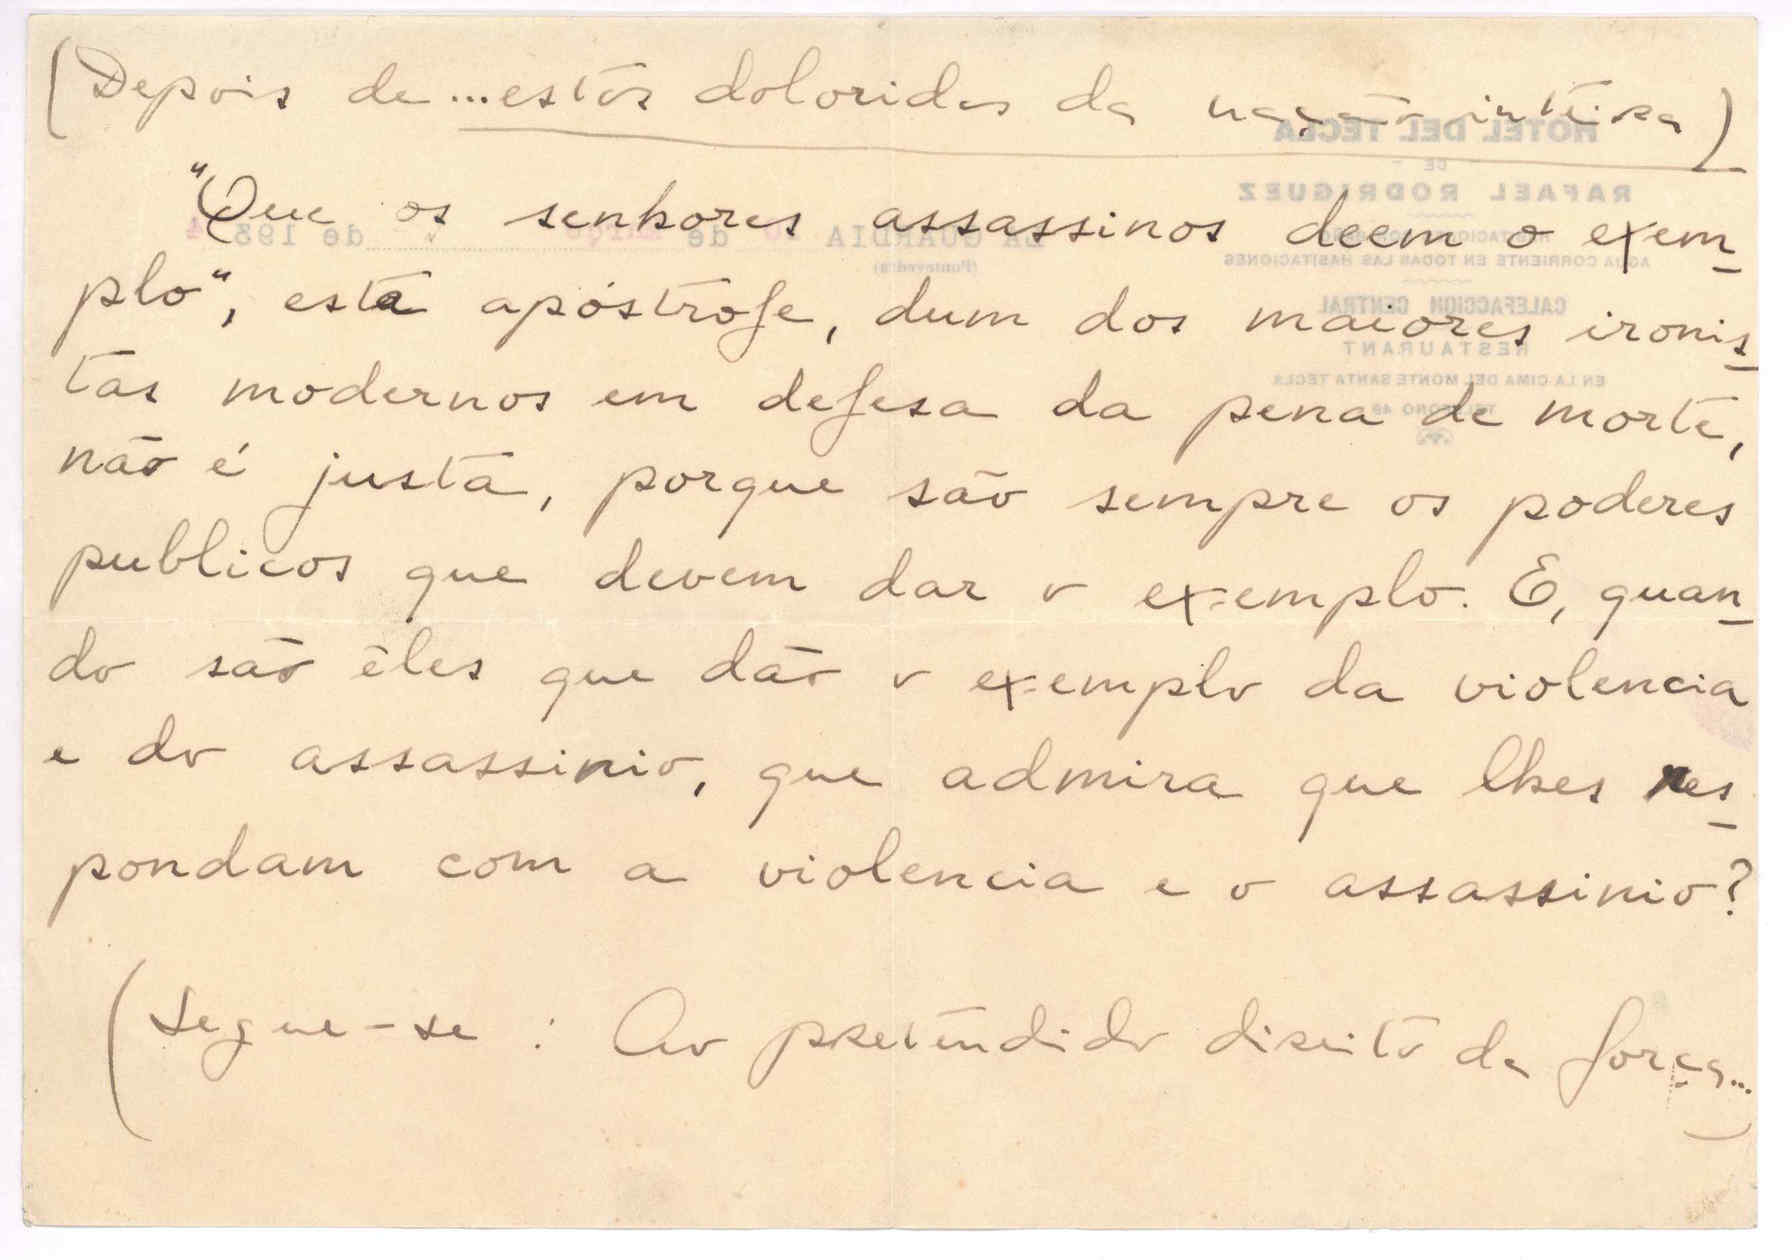 (Depois de ... estós doloridos da nação inteira)
"Que os senhores assassinos deem o exem-
plo", esta apóstrofe, dum dos maiores ironis-
tas modernos em defesa da pena de morte,
não é justa, porque são sempre os poderes
publicos que devem dar o exemplo. E, quan-
do são êles que dão o exemplo da violencia
e do assassinio, que admira que lhes res-
pondam com a violencia e o assassinio?
(Segue-se : Ao pretendido direito da força...)
HOTEL DEL TECLA
DE
RAFAEL RODRIGUEZ
AGUA CORRIENTE EN TODAS LAS HABITACIONES
CALEFACCION CENTRAL
RESTAURANT
EN LA CIMA DEL MONTE SANTA TECLA
TELEFONO 49
LA GUARDIA de de 193
(Pontevedra)